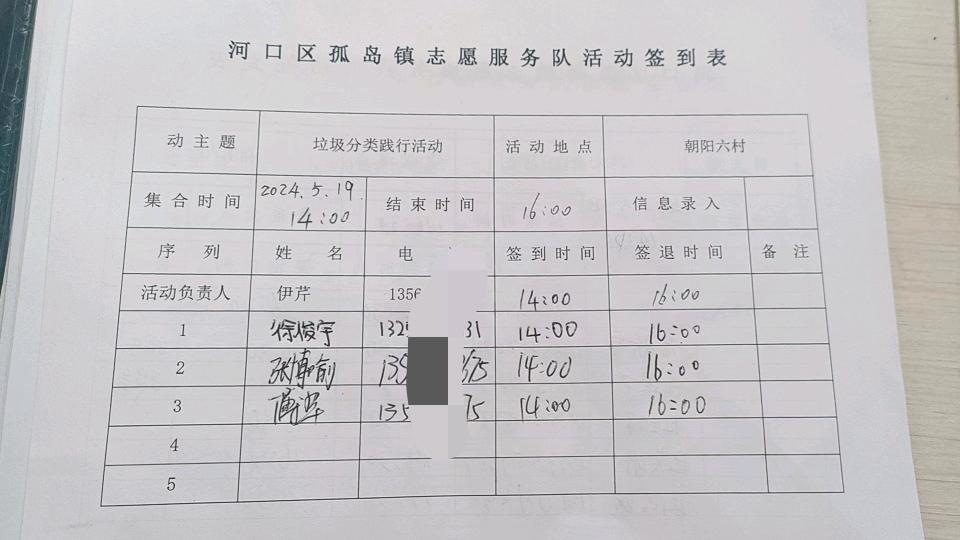 河口区孤岛镇志愿服务队活动签到表
动主题 垃圾分类践行活动 活动地点 朝阳六村
集合时间 2024.5.19. 14:00 结束时间 16:00 信息录入
序列 姓名 电 签到时间 签退时间 备注
活动负责人 伊芹 1356 14:00 16:00
1 徐俊宇 132 31 14:00 16:00
2 张博喻 135 75 14:00 16:00
3 135 75 14:00 16:00
4
5